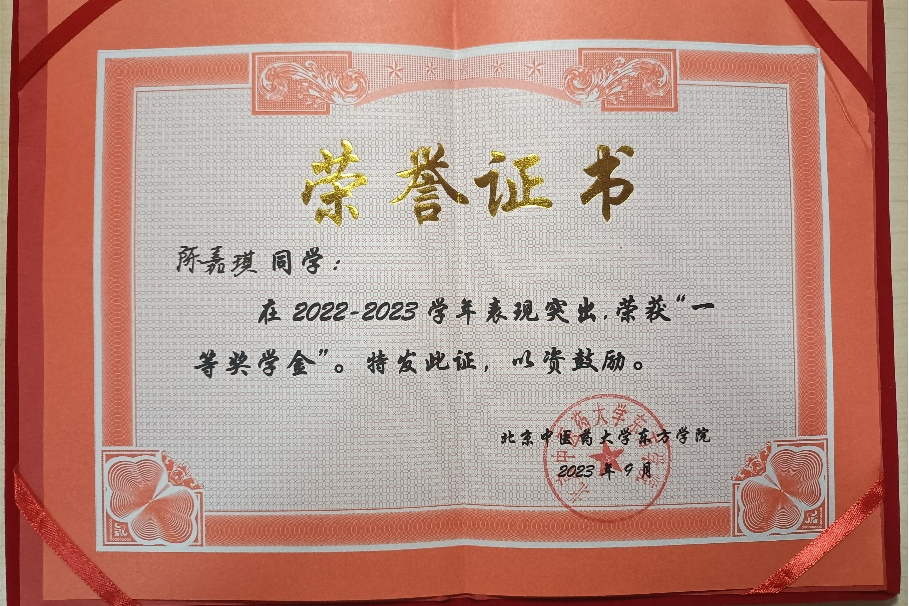 荣誉证书
陈嘉琪 同学：
在 2022-2023 学年表现突出，荣获“一
等奖学金”。特发此证，以资鼓励。
北京中医药大学东方学院
2023 年 9 月
北京中医药大学东方学院